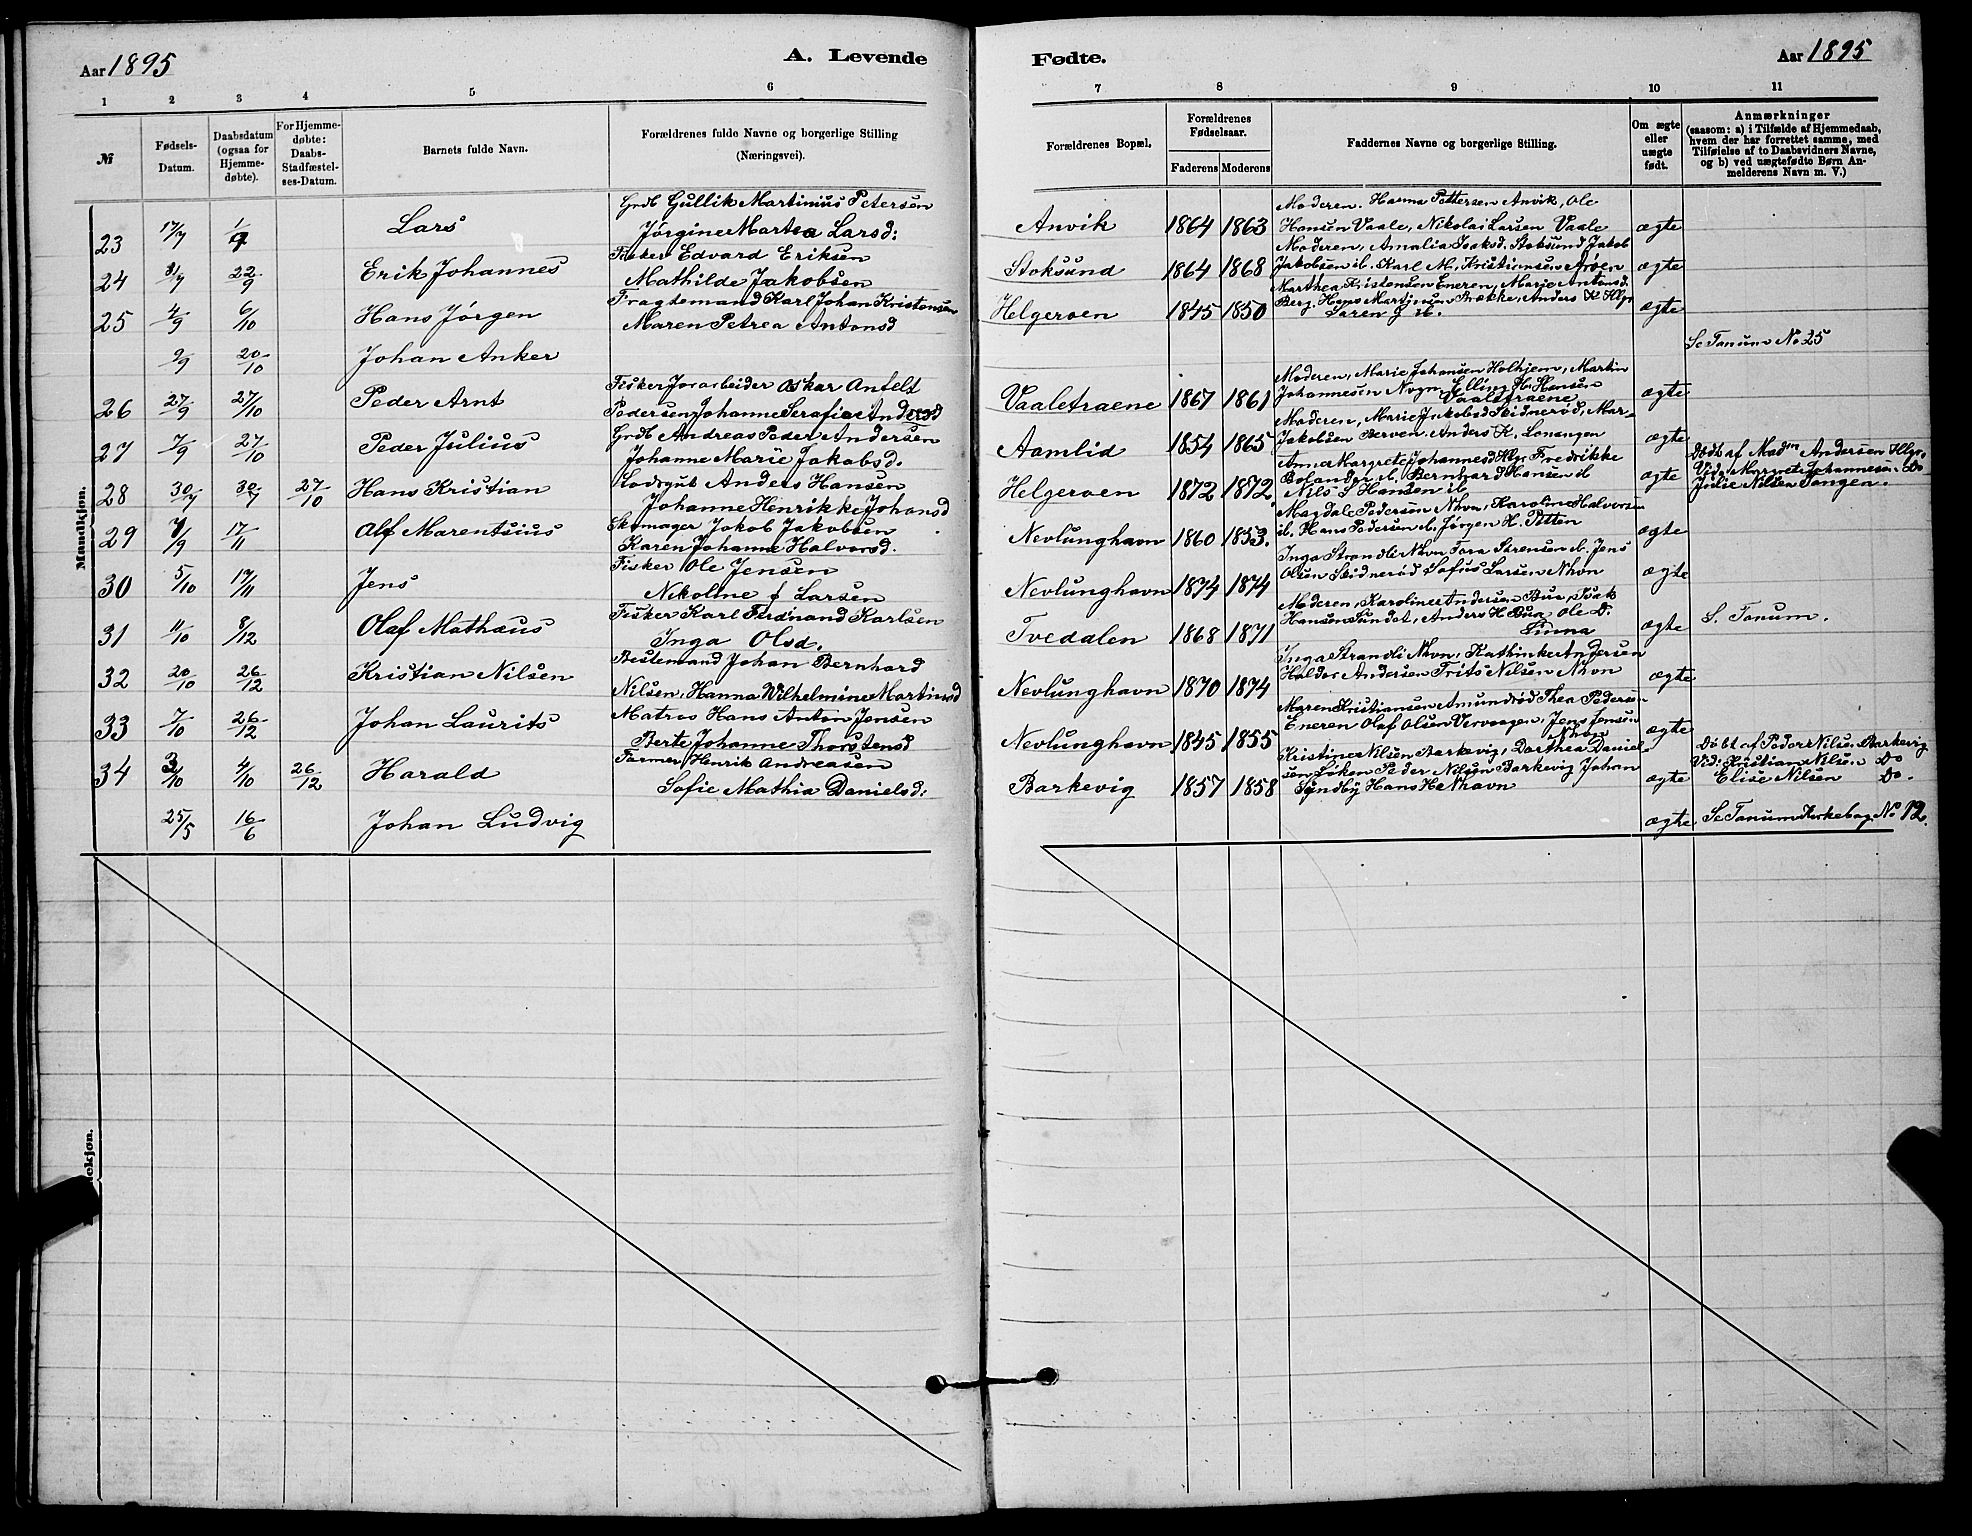 Aar 1895
A. Levende
1 2 3 4 5 6
№
Fødsels-Datum.
Daabsdatum (ogsaa for Hjemme-døbte).
For Hjemme-døbte: Daabs-Stadfæstel-ses-Datum.
Barnets fulde Navn.
Forældrenes fulde Navne og borgerlige Stilling
(Næringsvei).
Mandkjøn.
Grdb Gullik Martinius Petersen
23 17/7 1/9 Lars Jørgine Martea Larsd:
Fisker Edvard Eriksen
24 31/7 22/9 Erik Johannes Mathilde Jakobsen
Fragdemand Karl Johan Kristensen
25 4/9 6/10 Hans Jørgen Maren Petrea Antonsd
9/9 20/10 Johan Anker
Fisker Jorarbeider Oskar Antelt
26 27/9 27/10 Peder Arnt Pedersen, Johanne Serafia Andersd
Grdb Andreas Peder Andersen
27 7/9 27/10 Peder Julius Johanne Marie Jakobsd.
Lodsgut Anders Hansen
28 30/7 30/7 27/10 Hans Kristian Johanne Henrikke Johansd
Skomager Jakob Jakobsen
29 9/9 17/11 Alf Marentsius Karen Johanne Halvorsd.
Fisker Ole Jensen
30 5/10 17/11 Jens Nikoline J Larsen
Fisker Karl Ferdinand Karlsen
31 11/10 8/12 Olaf Mathæus Inga Olsd.
Bestemand Johan Bernhard
32 20/10 26/12 Kristian Nilsen Nilsen, Hanna Wilhelmine Martinsd
Matros Hans Anton Jensen
33 7/10 26/12 Johan Laurits Berte Johanne Thorstensd
Farmer Henrik Andreasen
34 3/10 4/10 26/12 Harald Sofie Mathia Danielsd:
25/5 16/6 Johan Ludvig
Fødte.
Aar 1895
7 8 9 10 11
Forældrenes Bopæl.
Forældrenes Fødselsaar.
Faderens Moderens
Faddernes Navne og borgerlige Stilling.
Om ægte eller uægte født.
Anmærkninger
(saasom: a) i Tilfælde af Hjemmedaab,
hvem der har forrettet samme, med
Tilføielse af to Daabsvidners Navne,
og b) ved uægtefødte Børn An-
melderens Navn m. V.)
Moderen. Hanna Pettersen Anvik, Ole
Anvik 1864 1863 Hansen Vaale, Nikolai Larsen Vaale ægte
Moderen, Amalia Isaksd. Stoksund Jakob
Stoksund 1864 1868 Jakobsen ib. Karl M. Kristiansen Arøen ægte
Marthea Kristensen Eneren, Marie Antonsd.
Helgeroen 1845 1850 Berg. Hans Martinsen Brække, Anders K Hlgr ægte
Laren J ib.
Se Tanum No 25
Moderen, Marie Johansen Holhjem, Martin
Vaaletraene 1867 1861 Johannesen Elling Hansen ægte
Vaaletraene
Moderen, Marie Jakobsd Skidnerød, Mar-
Aamlid 1854 1865 Jakobsen Berven. Anders K. Lonangen ægte
Anna Margrete Johannesd Hlgr Fredrikke
Helgeroen 1872 1872 Bolander ib. Bernhard Hansen ib ægte
Nils S Hansen ib
Døbt af Madm Andersen Hlgr.
Vid: Margrete Johannesen Do
Julie Nilsen Tangen.
Magdale Pedersen Nhvn, Karoline Halvorsen
Nevlunghavn 1860 1853. ib. Hans Pedersen ib. Jørgen H. Petten ægte
Inga Strandli Nhvn Tora Sørensen ib. Jens
Nevlunghavn 1874 1874 Olsen Skidnerød Sofus Larsen Nhvn ægte
Moderen, Karoline Andersen Bua, Isak
Tvedalen 1868 1871 Hansen Sundet, Anders H Bua, Ole D. ægte S. Tanum.
Linna
Inga Strandli Nhvn, Kathinka Andersen
Nevlunghavn 1870 1874 Haldor Andersen Frits Nilsen Nhvn ægte
Maren Kristiansen Amundrød Thea Pedersen
Nevlunghavn 1845 1855 Eneren Olaf Olsen Vervaagen, Jens Jensen ægte
Nhvn
Kristine Nilsen Barkevig, Dorthea Daniel-
Barkevig 1857 1858 sen Løken Peder Nilsen Barkevig Johan ægte
Syndby Hans H Nhavn
Døbt af Peder Nilsen Barkevig
Vid: Kristian Nilsen Do
Elise Nilsen Do.
ægte Se Tanum Kirkebog No 12.